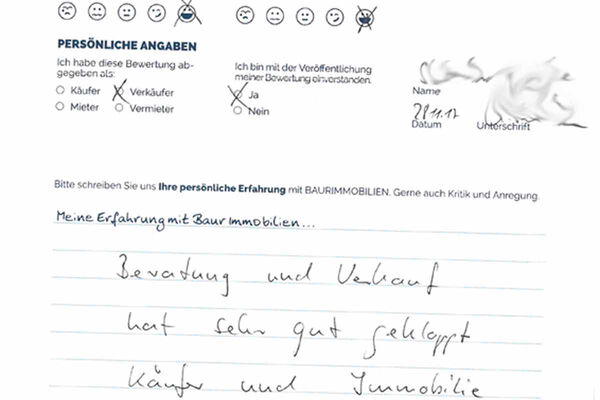 PERSÖNLICHE ANGABEN
Ich habe diese Bewertung ab-
gegeben als:
Käufer Verkäufer
Mieter Vermieter
Ich bin mit der Veröffentlichung
meiner Bewertung einverstanden.
Ja
Nein
Name
28.11.17
Datum Unterschrift
Bitte schreiben Sie uns Ihre persönliche Erfahrung mit BAURIMMOBILIEN. Gerne auch Kritik und Anregung.
Meine Erfahrung mit Baur Immobilien...
Beratung und Verkauf
hat sehr gut geklappt
Käufer und Immobilie